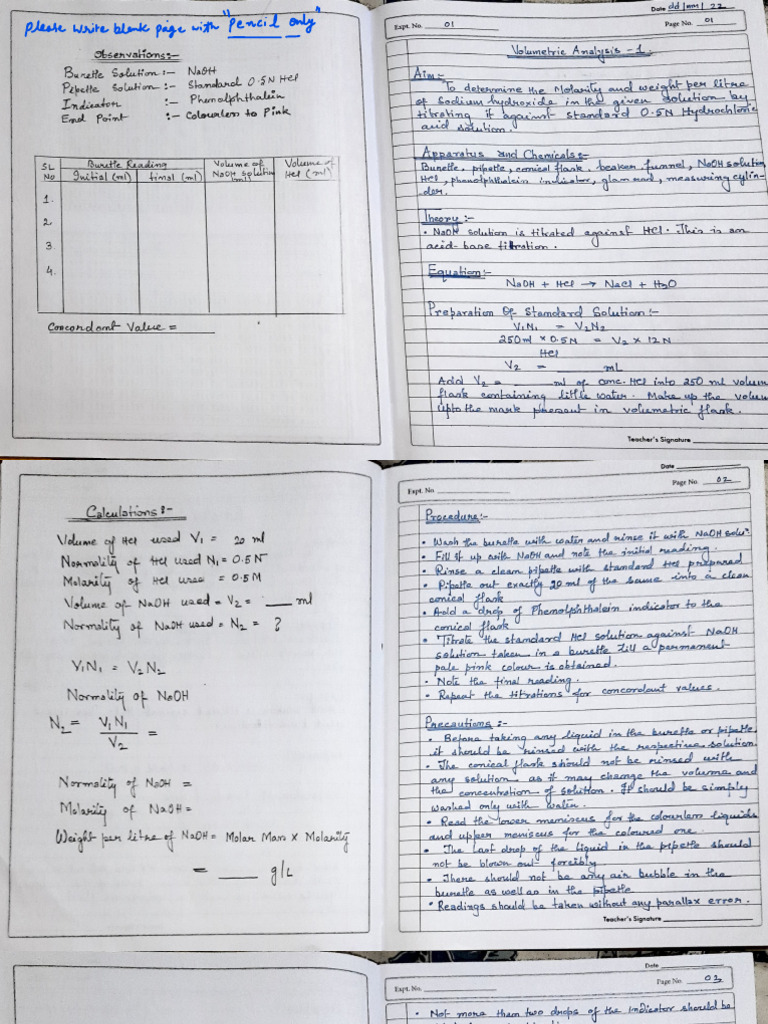 Please write blank page with "Pencil only"
Observations:-
Burette Solution :- NaOH
Pipette Solution :- Standard 0.5N HCl
Indicator :- Phenolphthalein
End Point :- Colourless to Pink
SL No
Burette Reading
Initial (ml)
final (ml)
Volume of NaOH solution (ml)
Volume of HCl (ml)
1.
2
3
4.
Concordant Value = ______
Date dd/mm/22
Expt. No. 01
Page No. 01
Volumetric Analysis - 1.
Aim:-
To determine the Molarity and weight per litre
of sodium hydroxide in the given solution by
titrating it against standard 0.5N Hydrochloric
acid solution.
Apparatus and Chemicals:-
Burette, pipette, conical flask, beaker, funnel, NaOH solution
HCl, phenolphthalein indicator, glass rod, measuring cylin-
der.
Theory:-
• NaOH solution is titrated against HCl. This is an
acid-base titration.
Equation:-
NaOH + HCl → NaCl + H2O
Preparation Of Standard Solution:-
V1N1 = V2N2
250ml × 0.5N = V2 × 12N
HCl
V2 = ______ mL
Add V2 = ______ ml of conc. HCl into 250 ml volum
flask containing little water. Make up the volum
upto the mark present in volumetric flask.
Teacher's Signature
Calculations:-
Volume of HCl used V1 = 20 ml
Normality of HCl used N1 = 0.5N
Molarity of HCl used = 0.5M
Volume of NaOH used = V2 = ___ ml
Normality of NaOH used = N2 = ?
V1N1 = V2N2
Normality of NaOH
N2 = V1N1 / V2 =
Normality of NaOH =
Molarity of NaOH =
Weight per litre of NaOH = Molar Mass × Molarity
= ___ g/L
Date
Expt. No
Page No. 02
Procedure:-
• Wash the burette with water and rinse it with NaOH solu
• Fill it up with NaOH and note the initial reading.
• Rinse a clean pipette with standard HCl prepared
• Pipette out exactly 20 ml of the same into a clean
conical flask
• Add a drop of Phenolphthalein indicator to the
conical flask
• Titrate the standard HCl solution against NaOH
solution taken in a burette till a permanent
pale pink colour is obtained.
• Note the final reading.
• Repeat the titrations for concordant values.
Precautions:-
• Before taking any liquid in the burette or pipette,
it should be rinsed with the respective solution.
• The conical flask should not be rinsed with
any solution as it may change the volume and
the concentration of solution. It should be simply
washed only with water.
• Read the lower meniscus for the colourless liquids
and upper meniscus for the coloured one.
• The last drop of the liquid in the pipette should
not be blown out forcibly
• There should not be any air bubble in the
burette as well as in the pipette
• Readings should be taken without any parallax error.
Teacher's Signature
Date
Expt. No.
Page No. 03
• Not more than two drops of the indicator should be